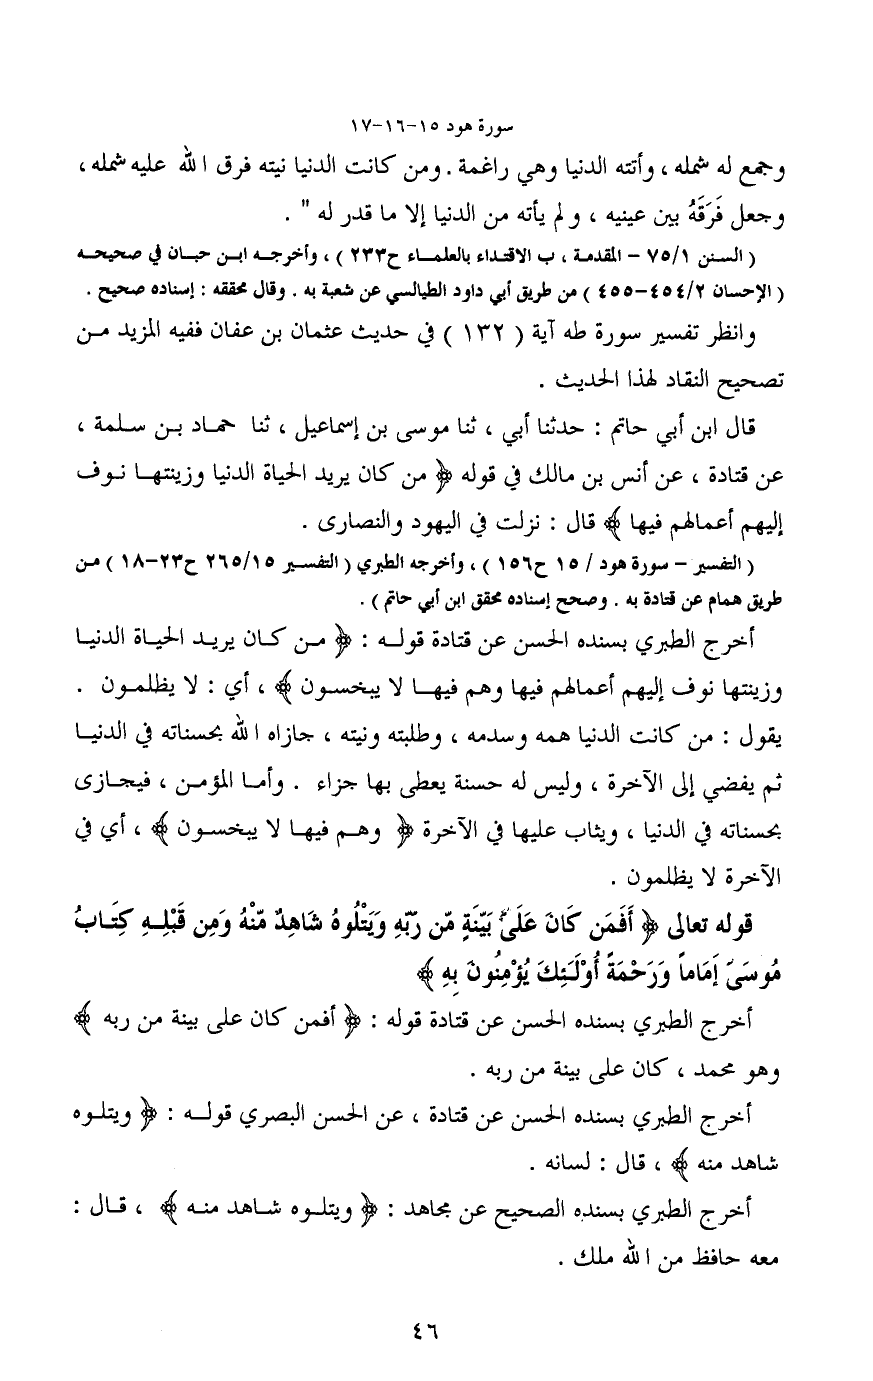 سورة هود ١٥-١٦-١٧
وجمع له شمله ، وأتته الدنيا وهي راغمة . ومن كانت الدنيا نيته فرق الله عليه شمله ،
وجعل فَرَقَهُ بين عينيه ، ولم يأته من الدنيا إلا ما قدر له " .
( السنن ٧٥/١ – المقدمة ، ب الاقتداء بالعلماء ح٢٣٣ ) ، وأخرجه ابن حبان في صحيحه
( الإحسان ٤٥٤/٢-٤٥٥ ) من طريق أبي داود الطيالسي عن شعبة به . وقال محققه : إسناده صحيح .
وانظر تفسير سورة طه آية ( ١٣٢ ) في حديث عثمان بن عفان ففيه المزيد من
تصحيح النقاد لهذا الحديث .
قال ابن أبي حاتم : حدثنا أبي ، ثنا موسى بن إسماعيل ، ثنا حماد بن سلمة ،
عن قتادة ، عن أنس بن مالك في قوله ﴿ من كان يريد الحياة الدنيا وزينتها نوف
إليهم أعمالهم فيها ﴾ قال : نزلت في اليهود والنصارى .
( التفسير – سورة هود / ١٥ ح١٥٦ ) ، وأخرجه الطبري ( التفسير ٢٦٥/١٥ ح١٨-٢٣ ) من
طريق همام عن قتادة به . وصحح إسناده محقق ابن أبي حاتم ) .
أخرج الطبري بسنده الحسن عن قتادة قوله : ﴿ من كان يريد الحياة الدنيا
وزينتها نوف إليهم أعمالهم فيها وهم فيها لا يبخسون ﴾ ، أي : لا يظلمون .
يقول : من كانت الدنيا همه وسدمه ، وطلبته ونيته ، جازاه الله بحسناته في الدنيا
ثم يفضي إلى الآخرة ، وليس له حسنة يعطى بها جزاء . وأما المؤمن ، فيجازى
بحسناته في الدنيا ، ويثاب عليها في الآخرة ﴿ وهم فيها لا يبخسون ﴾ ، أي في
الآخرة لا يظلمون .
قوله تعالى ﴿ أَفَمَن كَانَ عَلَىٰ بَيِّنَةٍ مِّن رَّبِّهِ وَيَتْلُوهُ شَاهِدٌ مِّنْهُ وَمِن قَبْلِهِ كِتَابُ
مُوسَىٰ إِمَاماً وَرَحْمَةً أُوْلَئِكَ يُؤْمِنُونَ بِهِ ﴾
أخرج الطبري بسنده الحسن عن قتادة قوله : ﴿ أفمن كان على بينة من ربه ﴾
وهو محمد ، كان على بينة من ربه .
أخرج الطبري بسنده الحسن عن قتادة ، عن الحسن البصري قوله : ﴿ ويتلوه
شاهد منه ﴾ ، قال : لسانه .
أخرج الطبري بسنده الصحيح عن مجاهد : ﴿ ويتلوه شاهد منه ﴾ ، قال :
معه حافظ من الله ملك .
٤٦